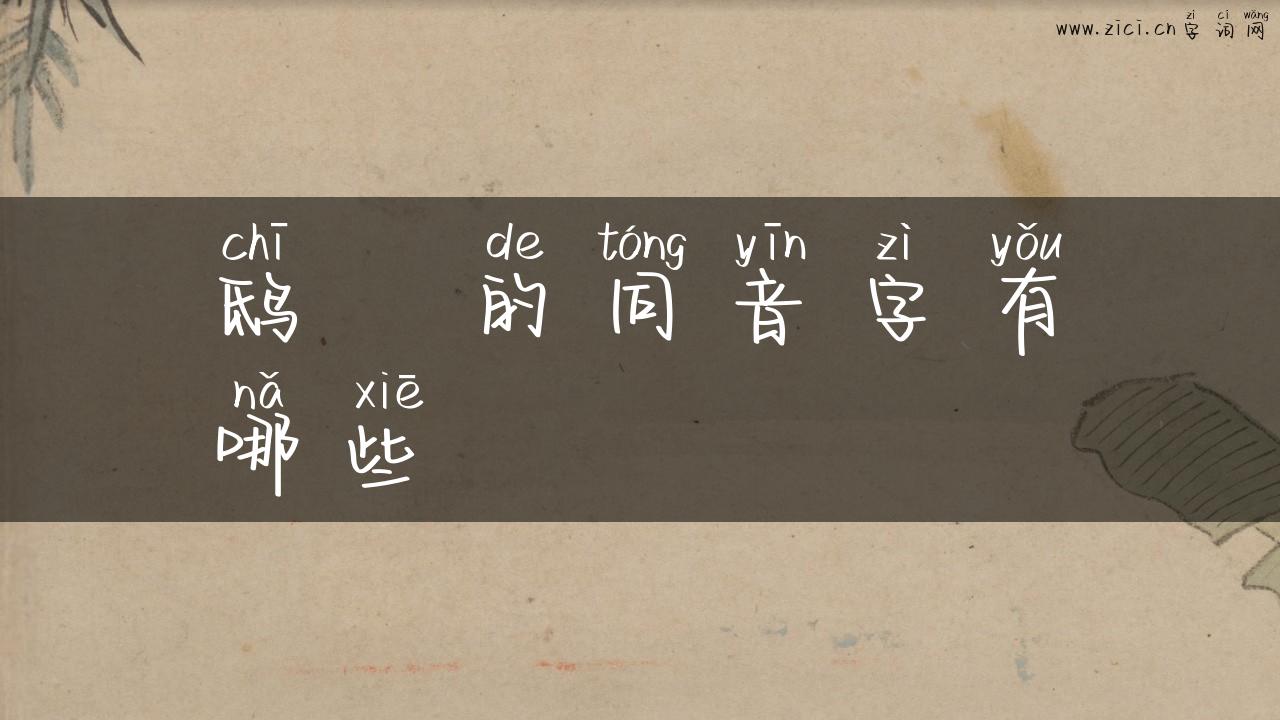 zì cí wǎng
www.zici.cn 字 词 网
chī de tóng yīn zì yǒu
鸱 的 同 音 字 有
nǎ xiē
哪 些